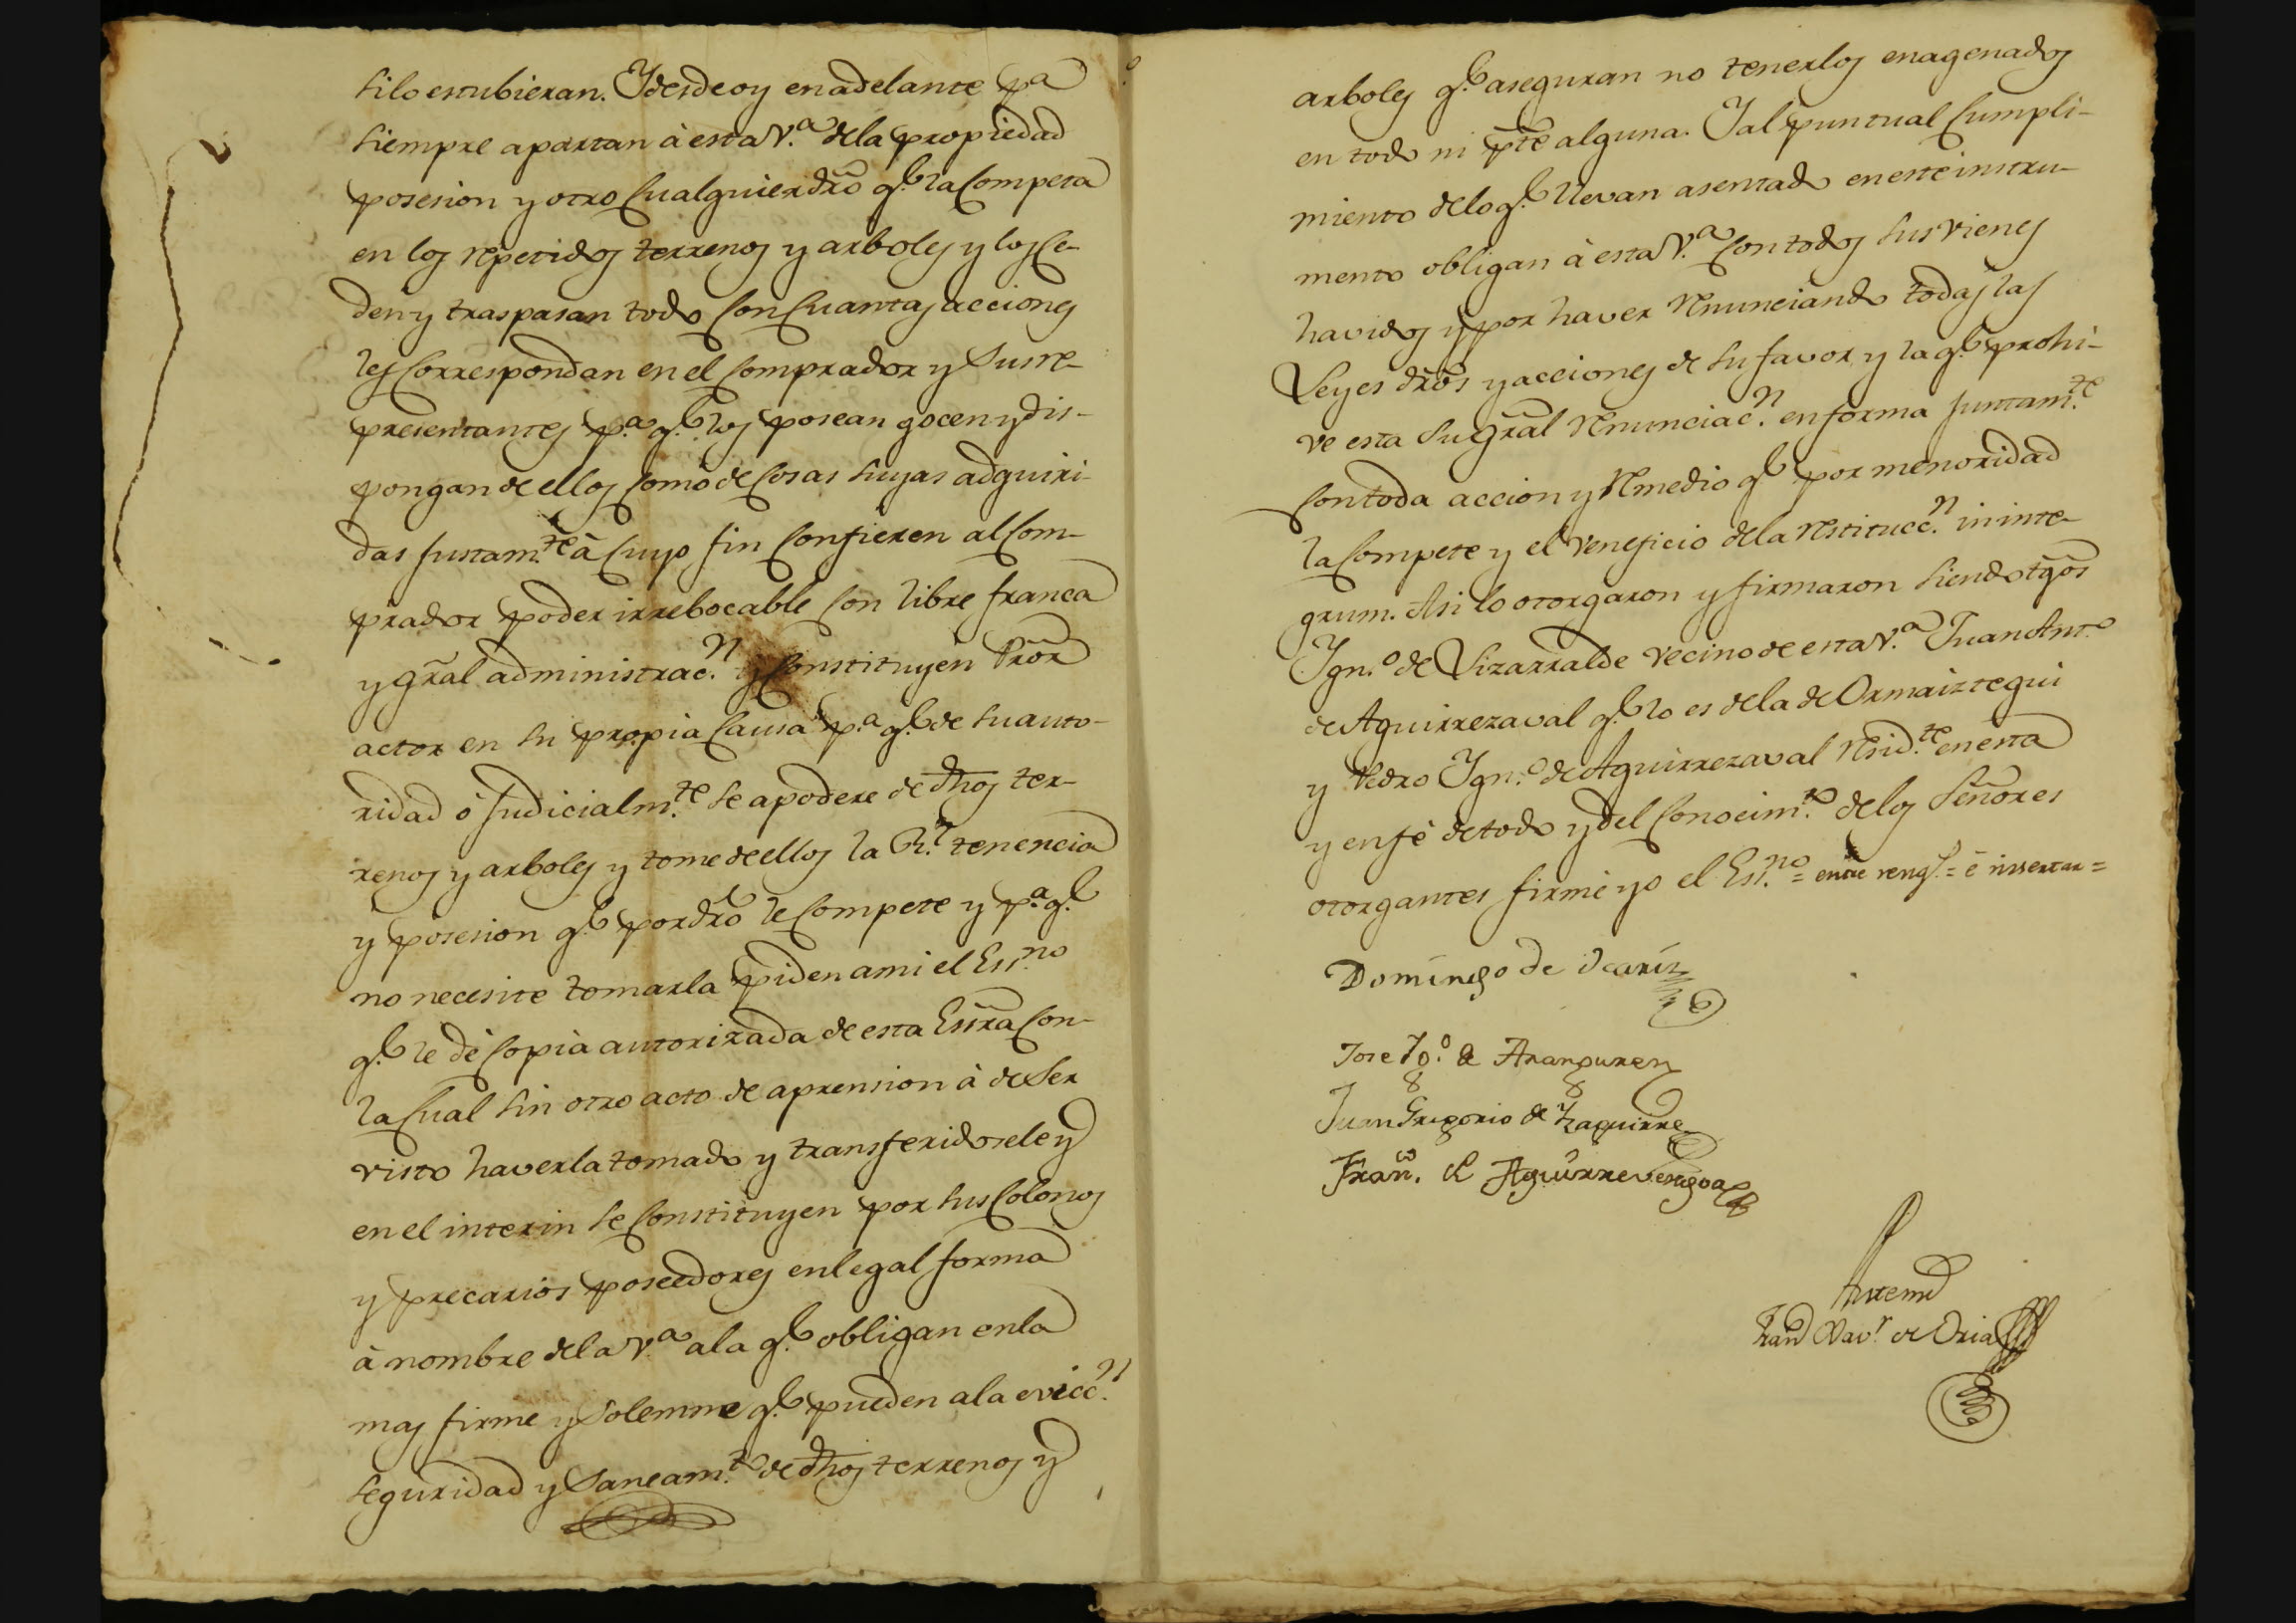 si lo estubieran. Y desde oy en adelante pa
siempre apartan à esta V.a de la propiedad
posesion y otro cualquier dro q.e la competa
en los repetidos terrenos y arboles y los ce-
den y traspasan todo con cuantas acciones
les correspondan en el comprador y sus re-
presentantes p.a q.e los posean gocen y dis-
pongan de ellos como de cosas suyas adquiri-
das justam.te à cuyo fin confieren al com-
prador poder irrebocable con libre franca
y gral administrac.n y constituyen Pror
actor en su propia causa p.a q.e de su auto-
ridad ó judicialm.te se apodere de dhos ter-
renos y arboles y tome de ellos la R.l tenencia
y posesion q.e por dro le compete y p.a q.e
no necesite tomarla piden a mi el Ess.no
q.e le dé copia autorizada de esta Essra con
la cual sin otro acto de aprension à de ser
visto haverla tomado y transferidosele y
en el interin se constituyen por sus colonos
y precarios poseedores en legal forma
à nombre de la V.a a la q.e obligan en la
mas firme y solemne q.e pueden a la evicc.n
seguridad y saneam.to de dhos terrenos y
arboles q.e aseguran no tenerlos enagenados
en todo ni pte alguna. Y al puntual cumpli-
miento de lo q.e llevan asentado en este instru-
mento obligan à esta V.a con todos sus vienes
havidos y por haver renunciando todas las
Leyes dros y acciones de su favor y la q.e prohi-
ve esta su gral renunciac.n en forma juntam.te
con toda accion y remedio q.e por menoridad
la compete y el veneficio de la restitucc.n in inte-
grum. Asi lo otorgaron y firmaron siendo tgos
Ign.o de Lizarralde vecino de esta V.a Juan Ant.o
de Aguirrezaval q.e lo es de la de Ormaiztegui
y Pedro Ign.o de Aguirrezaval resid.te en esta
y en fé de todo y del conocim.to de los Señores
otorgantes firmé yo el Ess.no = entre rengs. = é insertar =
Domingo de Ycariz
Jose Ig.o de Aranguren
Juan Gregorio de Yzaguirre
Fran.co de Aguirrevengoa
Ante mi
Fran.co Xav.r de Oria